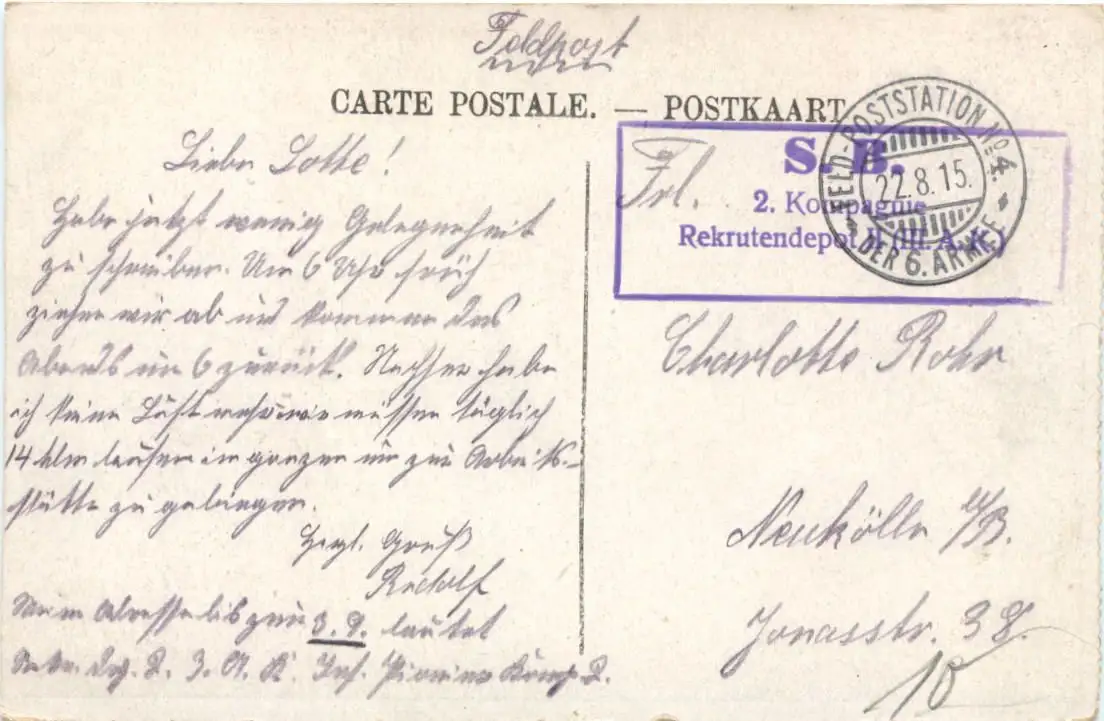 Feldpost
CARTE POSTALE. — POSTKAART
Liebe Lotte!
Habe jetzt wenig Gelegenheit
zu schreiben. Um 6 Uhr früh
ziehen wir ab und kommen des
Abends um 6 zurück. Nachher habe
ich keine Lust mehr wir müssen täglich
14 klm laufen im ganzen um zur Arbeits-
stätte zu gelangen.
Herzl. Gruß
Rudolf
Meine Adresse bis zum 3. 9. lautet
Rekr. Dep. 2. 3. A. K. Inf. Pionier Komp. 2.
S. B.
2. Kompagnie
Rekrutendepot II (III. A. K.)
FELD-POSTSTATION No 4.
22.8.15.
* DER 6. ARMEE *
Frl.
Charlotte Rohr
Neukölln b/B.
Jonasstr. 38.
10